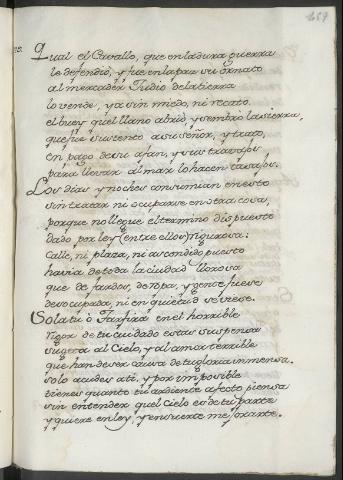 Qual el Cavallo, que en la dura guerra
le defendió, y fue en la paz su ornato
al mercader Judio de la tierra
lo vende, ya sin miedo, ni recato.
el buey quel llano abrió, y sembró la sierra,
que fue sustento a su señor, y trato,
en pago de su afan, y sus trabajos
para llevar al mar lo hacen tasajos.
Los dias, y noches consumian en esto
sin tratar ni ocuparse en otra cosa,
porque no llegue el termino dispuesto
dado por ley (entre ellos) rigurosa:
Calle, ni plaza, ni ascondido puesto
havia de toda la ciudad llorosa
que de fardos, de ropa, y gente fuese
desocupada, ni en quietud se viese.
Sola tu ò Jarifa en el horrible
rigor de tu cuidado estas suspensa
sugeta al Cielo, y al amor terrible
que han de ser causa de tu gloria inmensa.
solo acudes a ti, y por imposible
tienes quanto tu ardiente afecto piensa
sin entender quel Cielo es de tu parte
y quiere en ley, y en suerte mejorarte.